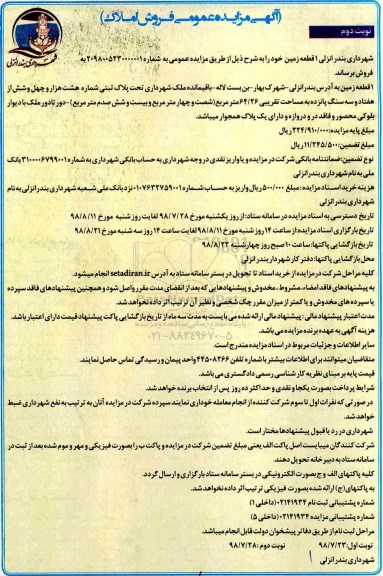 (آگهی مزایده عمومی فروش املاک)
نوبت دوم
شهرداری بندر انزلی
شهرداری بندر انزلی ۱ قطعه زمین خود را به شرح ذیل از طریق مزایده عمومی به شماره ۲۰۹۸۰۰۵۲۳۰۰۰۰۰۱ به
فروش برساند.
۱ قطعه زمین به آدرس بندر انزلی-شهرک بهار-بن بست لاله-باقیمانده ملک شهرداری تحت پلاک ثبتی شماره هشت هزار و چهل و شش از
هفتاد و سه سنگ پانزده به مساحت تقریبی ۶۴/۲۶ متر مربع (شصت و چهار متر مربع و بیست و شش صدم متر مربع) -دور تا دور ملک با دیوار
بلوکی محصور و فاقد در و دروازه و دارای یک پلاک همجوار میباشد.
مبلغ پایه مزایده: ۲۲۴/۹۱۰/۰۰۰ ریال
مبلغ تضمین: ۱۱/۲۴۵/۵۰۰ ریال
نوع تضمین: ضمانتنامه بانکی شرکت در مزایده و یا واریز نقدی در وجه شهرداری به حساب بانکی شهرداری به شماره ۳۱۰۰۰۰۶۷۹۹۰۰۱ بانک
ملی به نام شهرداری بندرانزلی
هزینه خرید اسناد مزایده: مبلغ ۵۰۰/۰۰۰ ریال واریز به حساب شماره ۰۱۰۷۶۳۲۷۵۹۰۰۱ نزد بانک ملی شعبه شهرداری بندرانزلی به نام
شهرداری بندر انزلی
تاریخ دسترسی به اسناد مزایده در سامانه ستاد: از روز یکشنبه مورخ ۹۸/۷/۲۸ لغایت روز شنبه مورخ ۹۸/۸/۱۱
تاریخ بازگزاری اسناد مزایده: از ساعت ۱۴ روز شنبه مورخ ۹۸/۸/۱۱ لغایت ساعت ۱۴ روز سه شنبه مورخ ۹۸/۸/۲۱
تاریخ بازگشایی پاکتها: ساعت ۱۰ صبح روز چهارشنبه ۹۸/۸/۲۲
محل بازگشایی پاکتها: دفتر کار شهردار بندر انزلی
کلیه مراحل شرکت در مزایده از خرید اسناد تا تحویل در بستر سامانه ستاد به آدرس setadiran.ir انجام میشود.
به پیشنهادهای فاقد امضاء، مشروط، مخدوش و پیشنهادهایی که بعد از انقضای مدت مقرر واصل شود و همچنین پیشنهادهای فاقد سپرده
یا سپرده های مخدوش و یا کمتر از میزان مقرر چک شخصی و نظیر آن ترتیب اثر داده نخواهد شد.
مدت اعتبار پیشنهاد مالی: پیشنهاد مالی ارائه شده می بایست به مدت سه ماه از تاریخ بازگشایی پاکت پیشنهاد قیمت دارای اعتبار باشد.
هزینه آگهی به عهده برنده مزایده می باشد.
۰۲۱-۸۸۳۴۹۶۷۰-۵
سایر اطلاعات و جزئیات مربوط در اسناد مزایده مندرج است.
متقاضیان میتوانند برای اطلاعات بیشتر با شماره تلفن ۴۴۵۰۸۲۶۶ واحد پیمان و رسیدگی تماس حاصل نمایند.
قیمت پایه بر مبنای نظریه کارشناسی رسمی دادگستری می باشد.
شرایط پرداخت بصورت یکجا و نقدی و حداکثر ده روز پس از انتخاب برنده خواهد شد.
در صورتی که نفرات اول تا سوم شرکت کننده از انجام معامله خودداری نمایند سپرده شرکت در مزایده آنان به ترتیب به نفع شهرداری ضبط
خواهد شد.
شهرداری در رد یا قبول پیشنهادها مختار است.
شرکت کنندگان میبایست اصل پاکت الف یعنی مبلغ تضمین شرکت در مزایده و پاکت ب را بصورت فیزیکی و مهر و موم شده بعد از ثبت در
سامانه ستاد به دبیرخانه تحویل دهند.
کلیه پاکتهای الف و ج بصورت الکترونیکی در بستر سامانه ستاد بارگزاری و ارسال گردد.
به پاکتهای (ج) ارائه شده بصورت فیزیکی ترتیب اثر داده نخواهد شد.
شماره پشتیبانی ثبت نام ۰۲۱۴۱۹۳۴ (داخلی ۱)
شماره پشتیبانی مزایده ۰۲۱۴۱۹۳۴ (داخلی ۵)
مراحل ثبت نام از طریق دفاتر پیشخوان دولت قابل انجام میباشد.
نوبت اول: ۹۸/۷/۲۳ نوبت دوم: ۹۸/۷/۲۸
شهرداری بندر انزلی